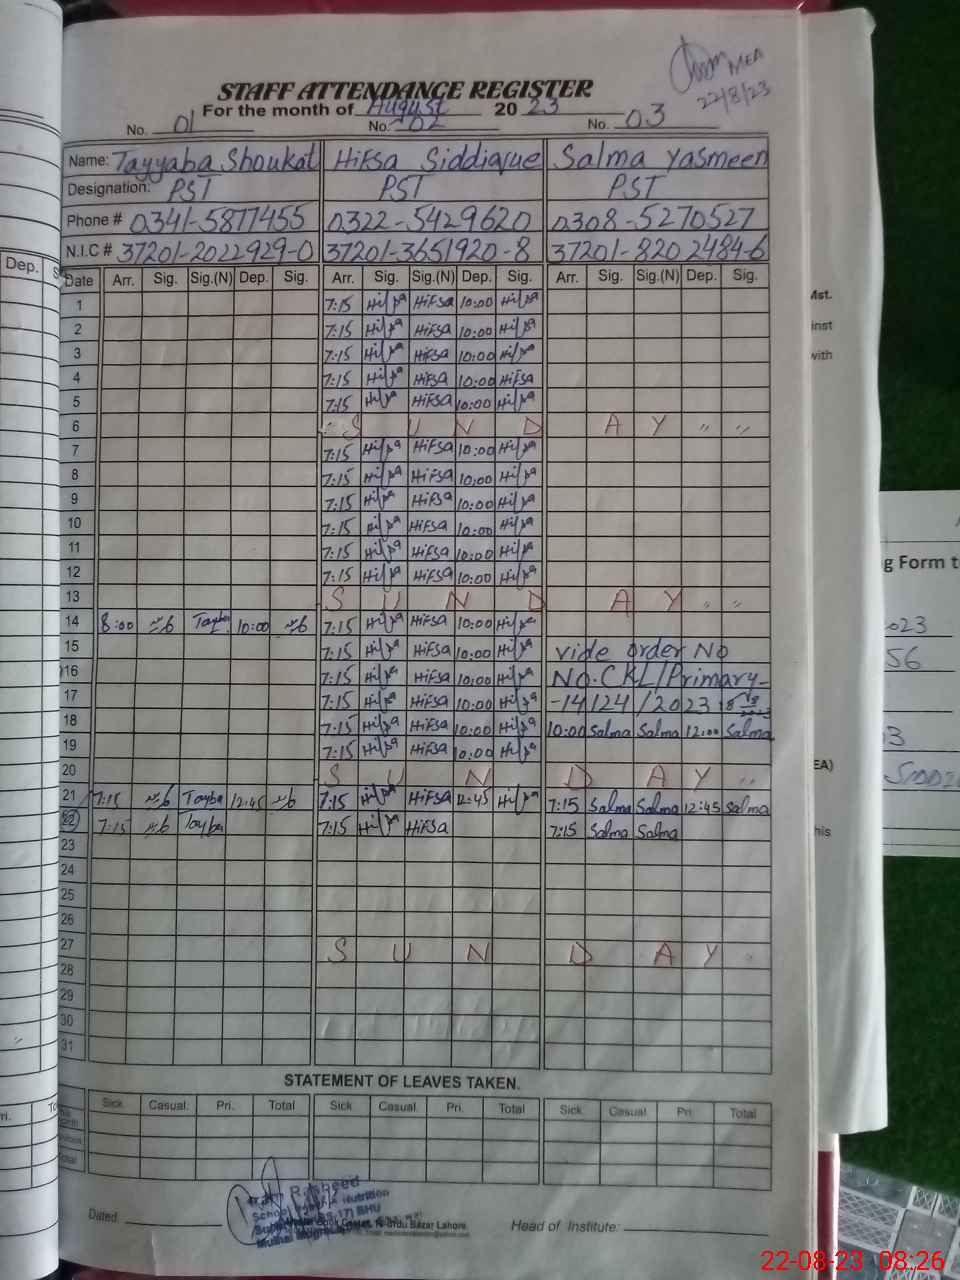 MEA
22/8/23
STAFF ATTENDANCE REGISTER
For the month of August 2023
No. 01 No. 02 No. 03
Name: Tayyaba Shoukat Hifsa Siddique Salma Yasmeen
Designation: PST PST PST
Phone # 0341-5877455 0322-5429620 0308-5270527
N.I.C # 37201-2022929-0 37201-3651920-8 37201-8202484-6
Dep.
Date Arr. Sig. Sig.(N) Dep. Sig. Arr. Sig. Sig.(N) Dep. Sig. Arr. Sig. Sig.(N) Dep. Sig.
1 7:15 Hifsa HiFSa 10:00 Hifsa
2 7:15 Hifsa HiFSa 10:00 Hifsa
3 7:15 Hifsa HiFSa 10:00 Hifsa
4 7:15 Hifsa HiFSa 10:00 HiFSa
5 7:15 Hifsa HiFSa 10:00 Hifsa
6 S U N D A Y " "
7 7:15 Hifsa HiFSa 10:00 Hifsa
8 7:15 Hifsa HiFSa 10:00 Hifsa
9 7:15 Hifsa HiFSa 10:00 Hifsa
10 7:15 Hifsa HiFSa 10:00 Hifsa
11 7:15 Hifsa HiFSa 10:00 Hifsa
12 7:15 Hifsa HiFSa 10:00 Hifsa
13 S U N D A Y " "
14 8:00 Tayba 10:00 7:15 Hifsa HiFSa 10:00 Hifsa
15 7:15 Hifsa HiFSa 10:00 Hifsa vide order No
16 7:15 Hifsa HiFSa 10:00 Hifsa No.CKL/Primary-
17 7:15 Hifsa HiFSa 10:00 Hifsa -14/124/2023
18 7:15 Hifsa HiFSa 10:00 Hifsa 10:00 Salma Salma 12:00 Salma
19 7:15 Hifsa HiFSa 10:00 Hifsa
20 S U N D A Y "
21 7:15 Tayba 12:45 7:15 Hifsa HiFSa 12:45 Hifsa 7:15 Salma Salma 12:45 Salma
22 7:15 Tayba 7:15 Hifsa HiFSa 7:15 Salma Salma
23
24
25
26
27 S U N D A Y "
28
29
30
31
STATEMENT OF LEAVES TAKEN.
Sick Casual. Pri. Total Sick Casual. Pri. Total Sick Casual Pri. Total
Rasheed
Nutrition
BHU
Dated Urdu Bazar Lahore Head of Institute:
Mst.
with
g Form t
56
EA)
his
22-08-23 08:26